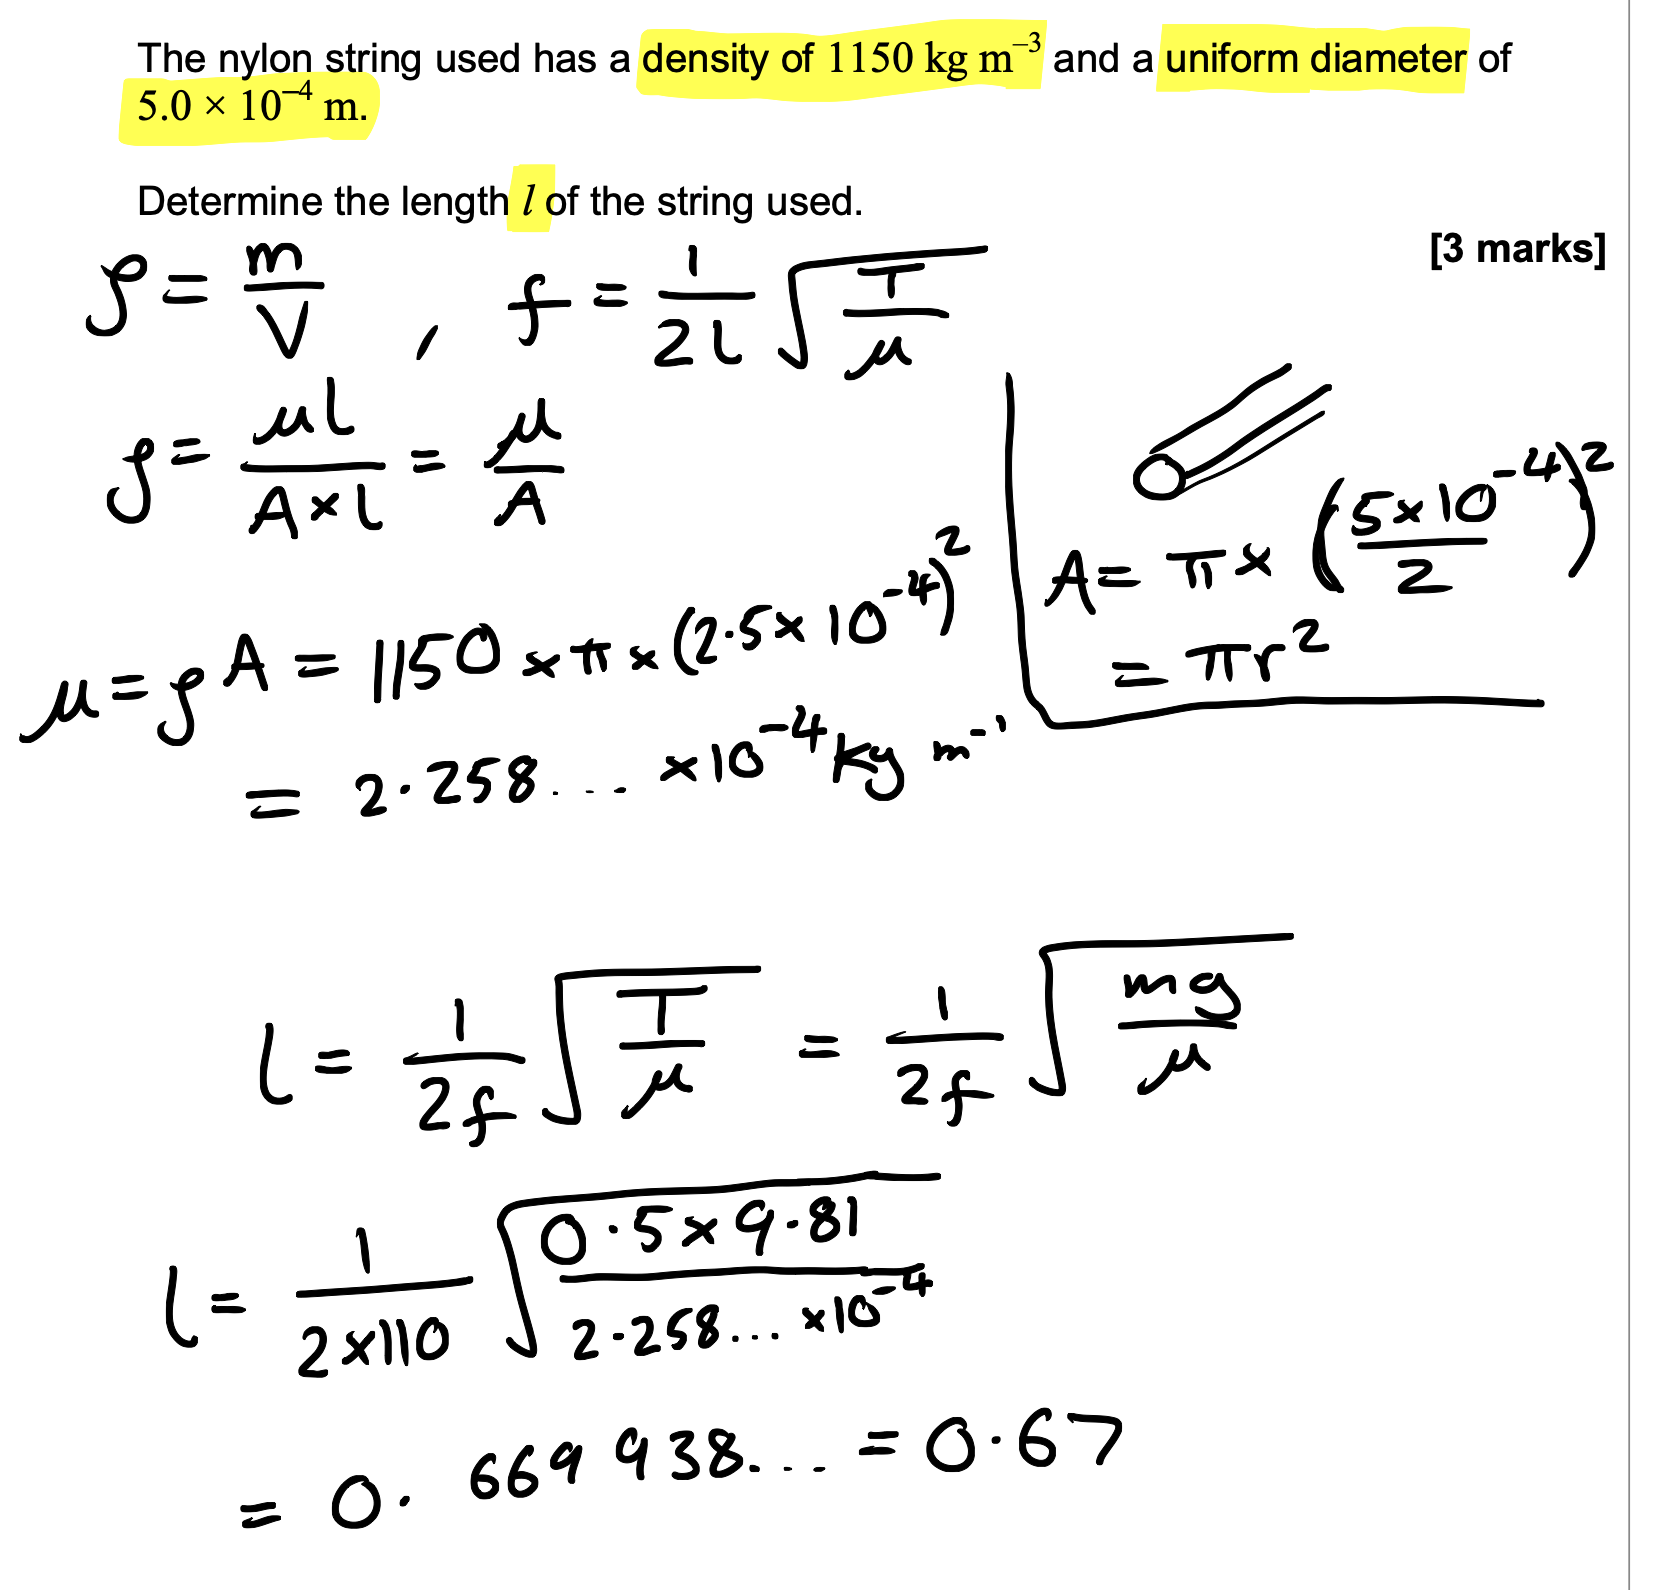 The nylon string used has a density of 1150 kg m⁻³ and a uniform diameter of
5.0 × 10⁻⁴ m.
Determine the length l of the string used.
[3 marks]
ρ = m/V , f = 1/2l √(T/μ)
ρ = μl/(A×l) = μ/A
A = π × (5×10⁻⁴/2)²
= πr²
μ = ρA = 1150 × π × (2.5×10⁻⁴)²
= 2.258... ×10⁻⁴ kg m⁻¹
l = 1/2f √(T/μ) = 1/2f √(mg/μ)
l = 1/(2×110) √(0.5×9.81/2.258... ×10⁻⁴)
= 0.669938... = 0.67